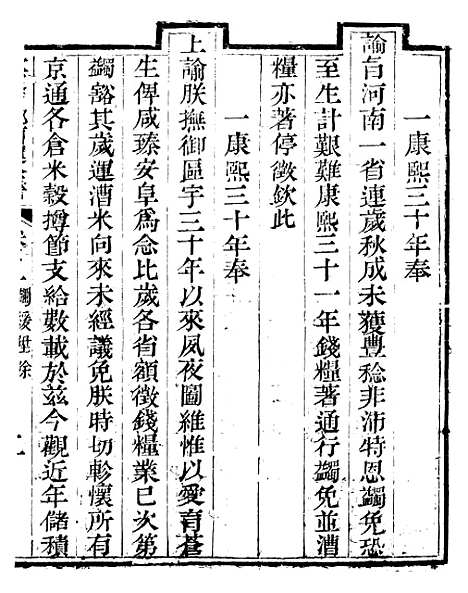 一康熙三十年奉
諭旨河南一省連歲秋成未獲豐稔非沛特恩蠲免恐
至生計艱難康熙三十一年錢糧著通行蠲免並漕
糧亦著停徵欽此
一康熙三十年奉
上諭朕撫御區宇三十年以來夙夜圖維惟以愛育蒼
生俾咸臻安阜爲念比歲各省額徵錢糧業已次第
蠲豁其歲運漕米向來未經議免朕時切軫懷所有
京通各倉米穀撙節支給數載於茲今觀近年儲積
蠲緩陞除